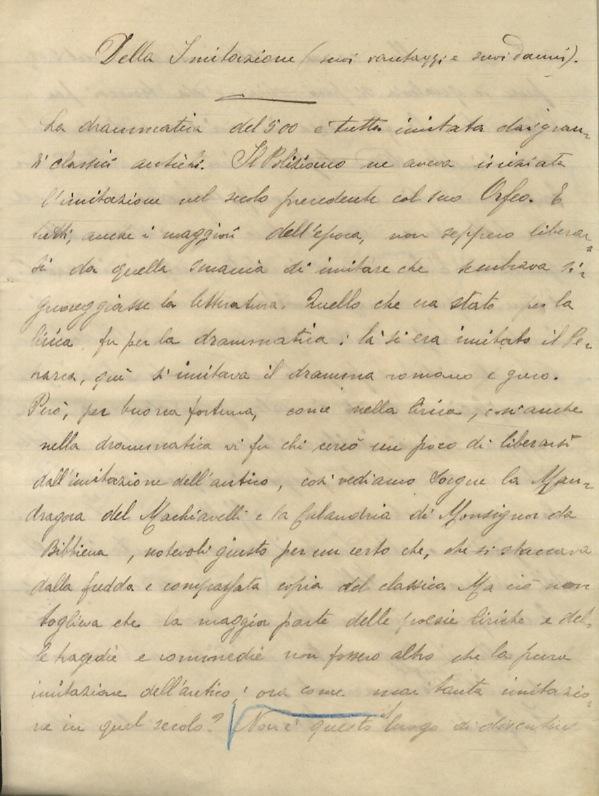 Della Imitazione (suoi vantaggi e suoi danni).
La drammatica del 500 è tutta imitata dai gran-
di classici antichi. Il Poliziano ne aveva iniziata
l'imitazione nel secolo precedente col suo Orfeo. E
tutti, anche i maggiori dell'epoca, non seppero liberar-
si da quella smania di imitare che sembrava si-
gnoreggiasse la letteratura. Quello che era stato per la
lirica fu per la drammatica: là si era imitato il Pe-
rarca, qui si imitava il dramma romano e greco.
Però, per buona fortuna, come nella lirica, così anche
nella drammatica vi fu chi cercò un poco di liberarsi
dall'imitazione dell'antico, così vediamo la Man-
dragora del Machiavelli e la Calandria di Monsignor da
Bibbiena, notevoli giusto per un certo che, che si staccava
dalla fredda e compassata copia del classico. Ma ciò non
toglieva che la maggior parte delle poesie liriche e del-
le tragedie e commedie non fossero altro che la pura
imitazione dell'antico: ora come mai tanta imitazio-
ne in quel secolo? Non è questo luogo di discutere